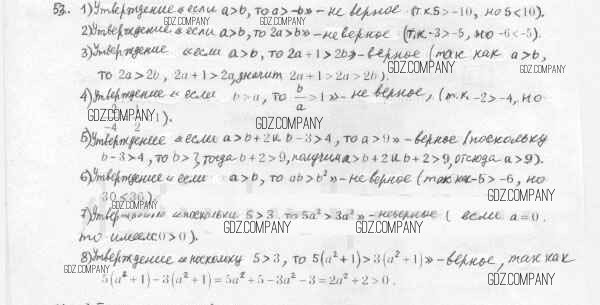 53. 1) Утверждение «если a>b, то a>-b» - не верное (т.к 5>-10, но 5<10).
2) Утверждение «если a>b, то 2a>b» - не верное (т.к -3>-5, но -6<-5).
3) Утверждение «если a>b, то 2a+1>2b» - верное (так как a>b,
то 2a>2b, 2a+1>2a, значит 2a+1>2a>2b).
4) Утверждение «если b>a, то b/a>1» - не верное, (т.к. -2>-4, но
-4 2 1).
5) Утверждение «если a>b+2 и b-3>4, то a>9» - верное (поскольку
b-3>4, то b>7, тогда b+2>9, получим a>b+2 и b+2>9, отсюда a>9).
6) Утверждение «если a>b, то ab>b²» - не верное (так как -5>-6, но
30<36).
7) Утверждение «поскольки 5>3, то 5a²>3a²» - неверное (если a=0,
то имеем 0>0).
8) Утверждение «поскольку 5>3, то 5(a²+1)>3(a²+1)» - верное, так как
5(a²+1)-3(a²+1)=5a²+5-3a²-3=2a²+2>0.
GDZ.COMPANY
GDZ.COMPANY
GDZ.COMPANY
GDZ.COMPANY
GDZ.COMPANY
GDZ.COMPANY
GDZ.COMPANY
GDZ.COMPANY
GDZ.COMPANY
GDZ.COMPANY
GDZ.COMPANY
GDZ.COMPANY
GDZ.COMPANY